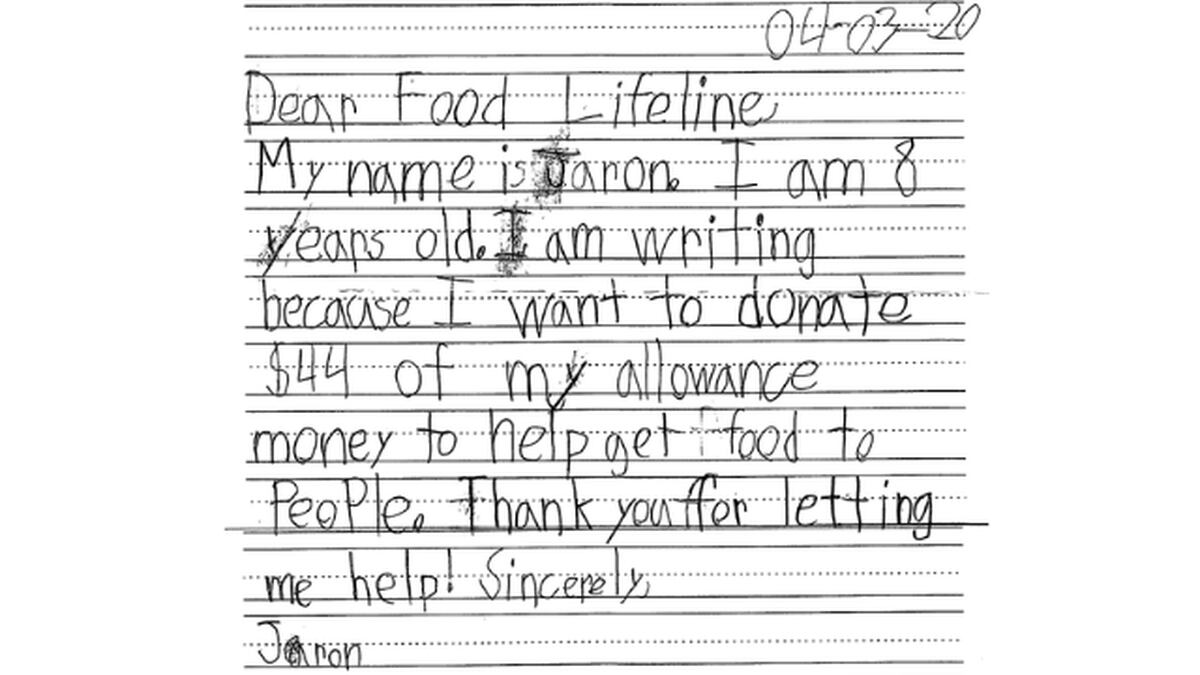 04-03-20
Dear Food Lifeline,
My name is Jaron. I am 8
years old. I am writing
because I want to donate
$44 of my allowance
money to help get food to
PeoPle. Thank you for letting
me help! Sincerely,
Jaron